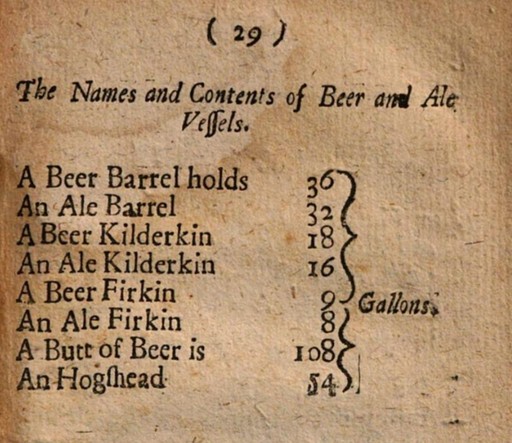 ( 29 )
The Names and Contents of Beer and Ale
Veſſels.
A Beer Barrel holds 36
An Ale Barrel 32
A Beer Kilderkin 18
An Ale Kilderkin 16
A Beer Firkin 9
Gallons.
An Ale Firkin 8
A Butt of Beer is 108
An Hogſhead 54